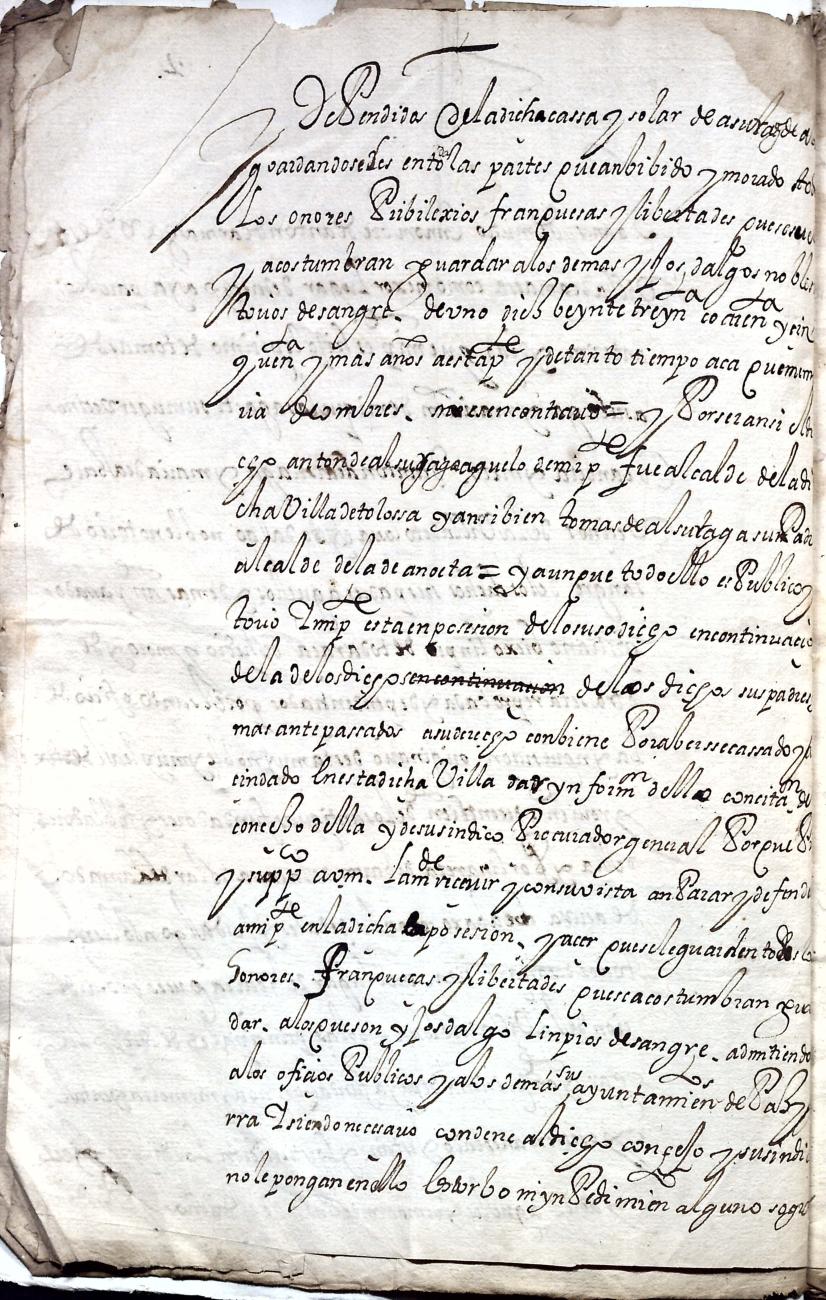 Dependidos de la dicha cassa y solar de asurtagde a
guardandoseles en todas las partes que an bibido y morado
los onores Pribilexios franquesas y libertades que se suele
y acostumbran guardar a los demas yjos dalgos no bles
torios de sangre. de uno diez beynte treynta co arenta y cin
quenta y mas años a esta pte y de tanto tiempo aca que mem
ria de ombres. no es en contrario = y Por ser ansi el di
cho anton de alsurtaga aguelo de mi pte fue alcalde de la di
cha Villa de tolossa y ansi bien tomas de alsurtaga su Padre
alcalde de la de anoeta = y aunque todo ello es Publico y
torio Y mi pte esta en posesion de lo suso dicho en continuació
de la de los dichos en continuacion de la de los dichos sus padres
mas antepassados a su derecho conbiene Por aberse cassado y
cindado En esta dicha Villa dar ynformn dello con citan del
concejo della y de su sindico Procurador general Por que P
y suppco a vm. la mde recevir y con su vista anparar y defende
a mi pte en la dicha su posesion y acer que se le guarden todos lo
honores. franquecas y libertades que se acostumbran gua
dar. a los que son yjos dalgo linpios de sangre. admitiendo
a los oficios Publicos y a los demas sus ayuntamientos de Paz y
rra Y siendo necesario condene al dicho concejo y su sindi
no le pongan en ello Estorbo ni ynpedimiento alguno sogra